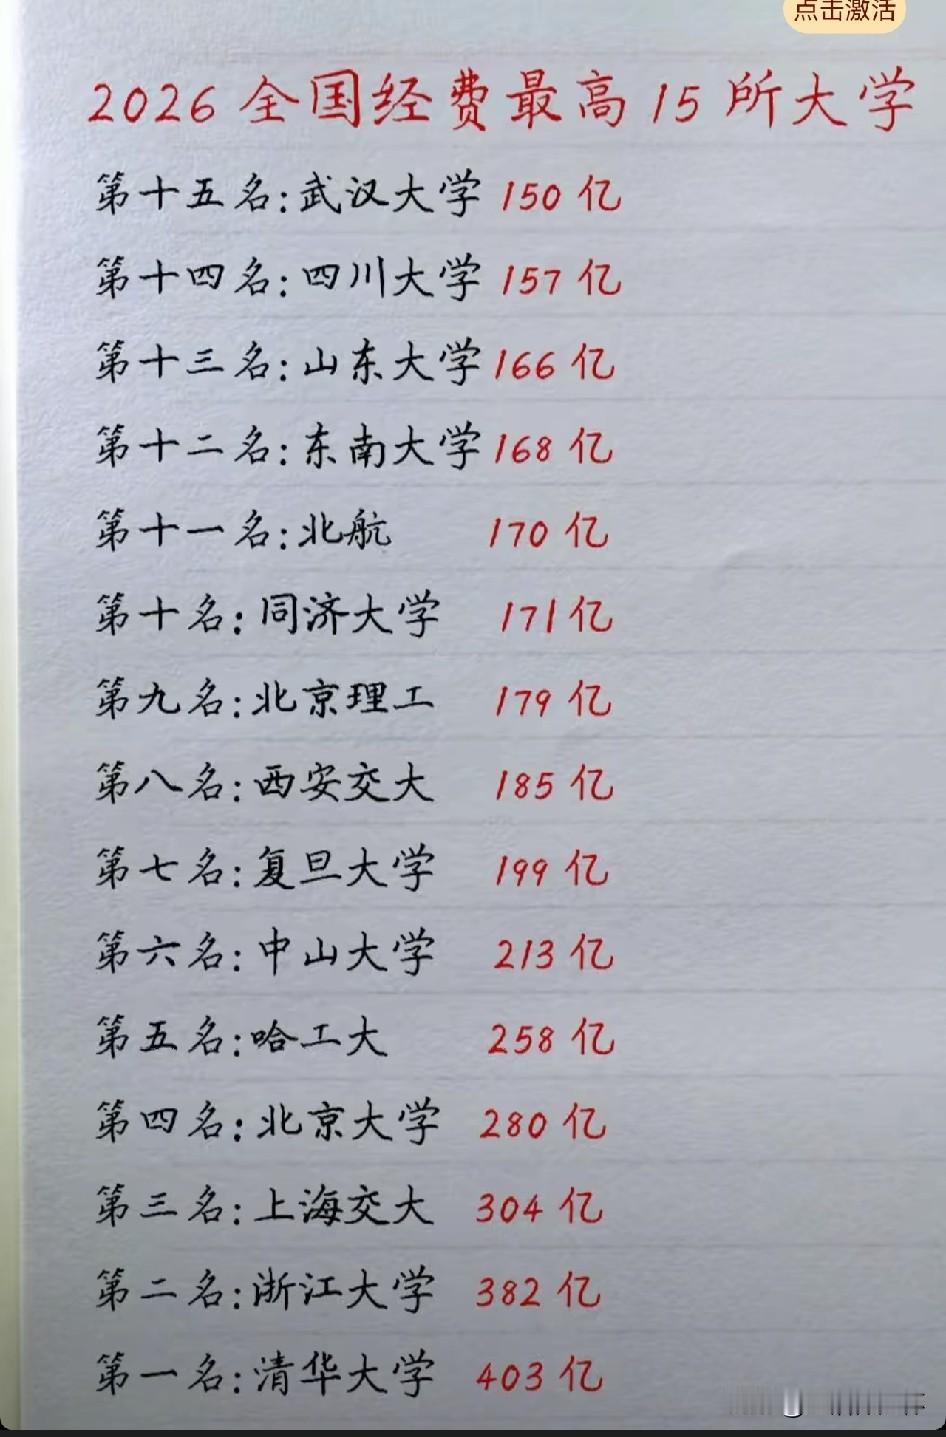 点击激活
2026全国经费最高15所大学
第十五名:武汉大学 150亿
第十四名:四川大学 157亿
第十三名:山东大学 166亿
第十二名:东南大学 168亿
第十一名:北航 170亿
第十名:同济大学 171亿
第九名:北京理工 179亿
第八名:西安交大 185亿
第七名:复旦大学 199亿
第六名:中山大学 213亿
第五名:哈工大 258亿
第四名:北京大学 280亿
第三名:上海交大 304亿
第二名:浙江大学 382亿
第一名:清华大学 403亿